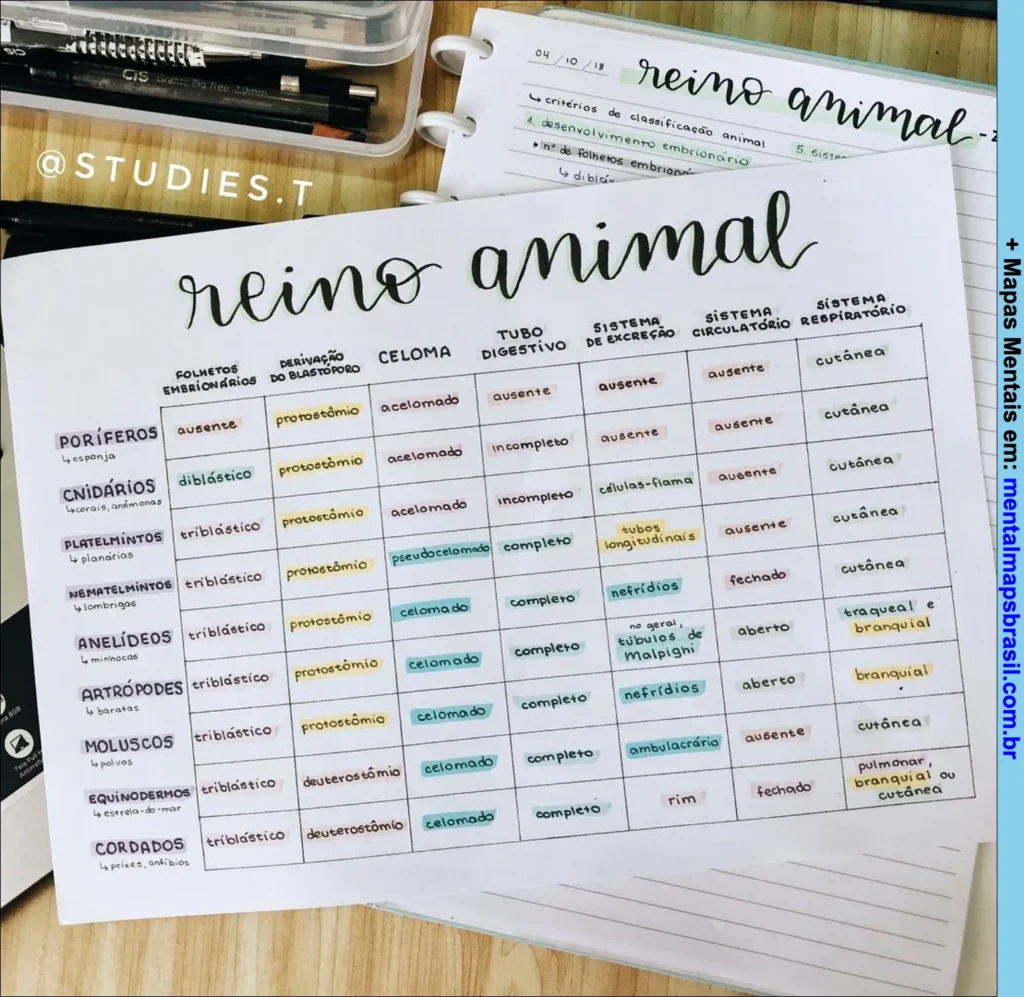 CIS Grants Big Tree 2.0mm
CIS
@STUDIES.T
04/10/18
reino animal
↳ critérios de classificação animal
1. desenvolvimento embrionário
5. Siste
• nº de folhetos embrioná
↳ diblás
reino animal
FOLHETOS EMBRIONÁRIOS | DERIVAÇÃO DO BLASTÓPORO | CELOMA | TUBO DIGESTIVO | SISTEMA DE EXCREÇÃO | SISTEMA CIRCULATÓRIO | SISTEMA RESPIRATÓRIO
PORÍFEROS ↳ esponja | ausente | protostômio | acelomado | ausente | ausente | ausente | cutânea
CNIDÁRIOS ↳ corais, anêmonas | diblástico | protostômio | acelomado | incompleto | ausente | ausente | cutânea
PLATELMINTOS ↳ planárias | triblástico | protostômio | acelomado | incompleto | células-flama | ausente | cutânea
NEMATELMINTOS ↳ lombrigas | triblástico | protostômio | pseudocelomado | completo | tubos longitudinais | ausente | cutânea
ANELÍDEOS ↳ minhocas | triblástico | protostômio | celomado | completo | nefrídios | fechado | cutânea
ARTRÓPODES ↳ baratas | triblástico | protostômio | celomado | completo | no geral, túbulos de Malpighi | aberto | traqueal e branquial
MOLUSCOS ↳ polvos | triblástico | protostômio | celomado | completo | nefrídios | aberto | branquial
EQUINODERMOS ↳ estrela-do-mar | triblástico | deuterostômio | celomado | completo | ambulacrário | ausente | cutânea
CORDADOS ↳ peixes, anfíbios | triblástico | deuterostômio | celomado | completo | rim | fechado | pulmonar, branquial ou cutânea
+ Mapas Mentais em: mentalmapsbrasil.com.br